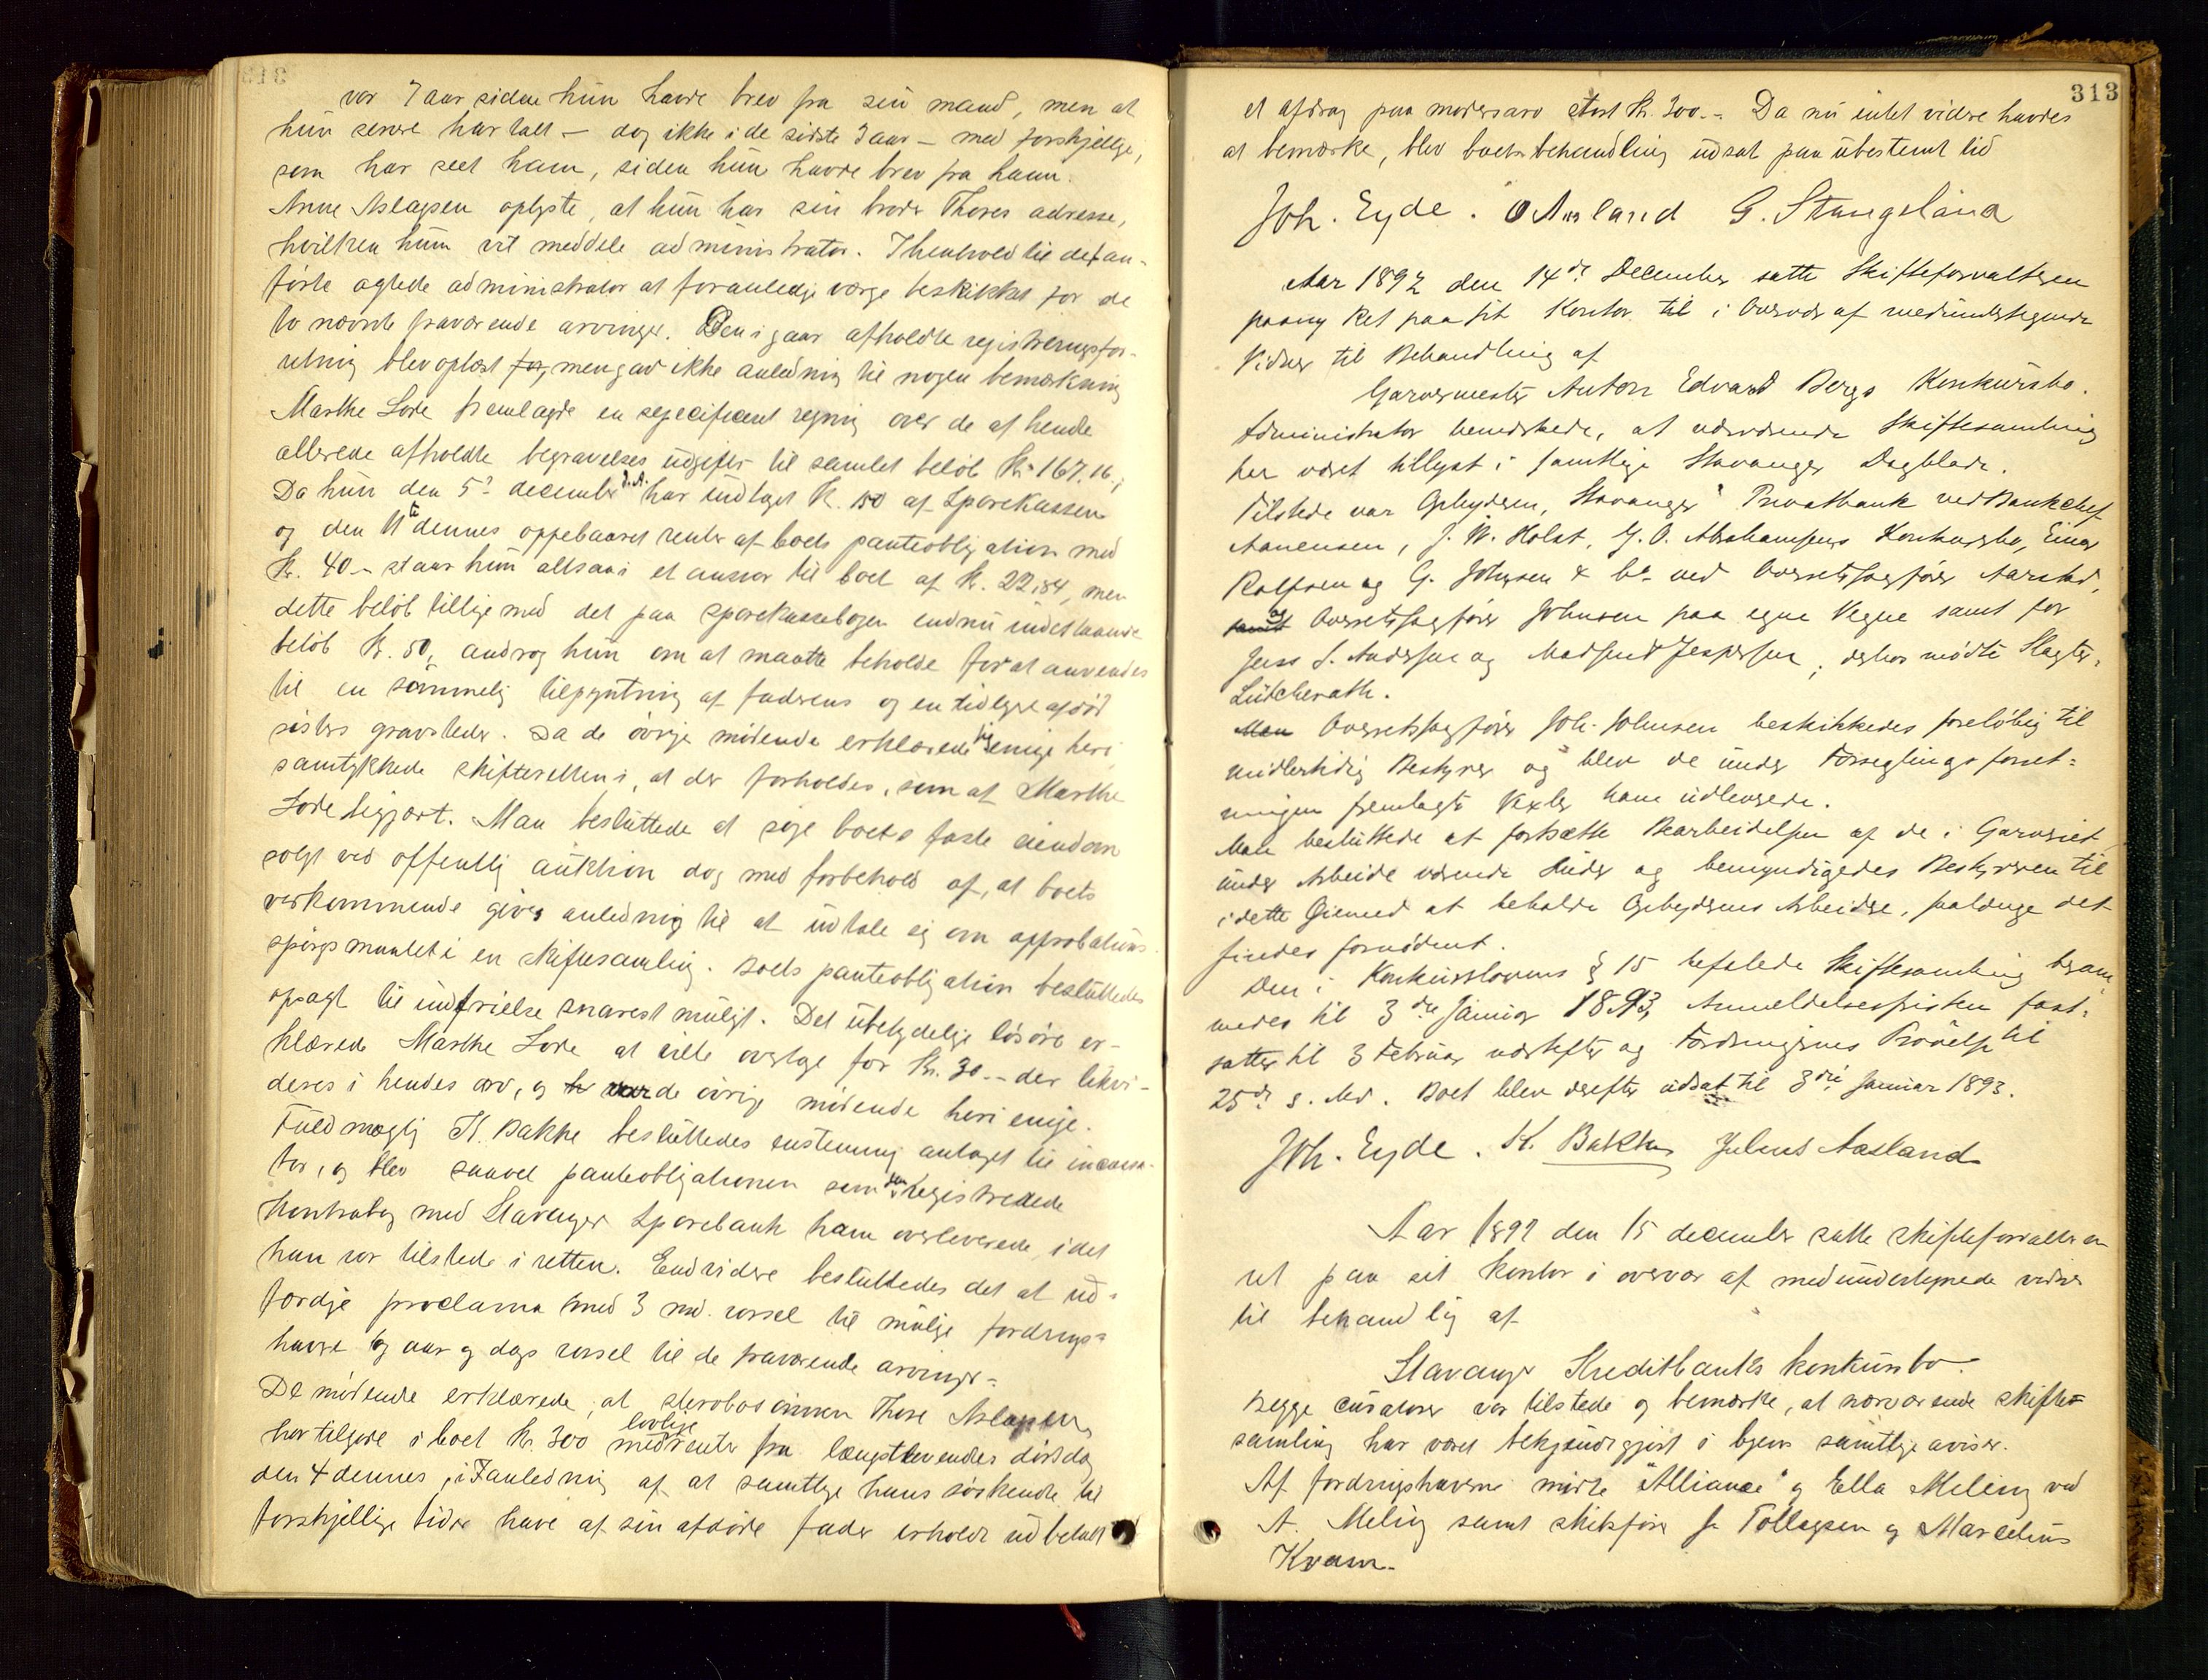 var 7 aar siden hun havde brev fra sin mand, men at
hun senere har talt – dog ikke i de sidste 3 aar – med forskjellige,
som har seet ham, siden hun havde brev fra ham.
Anne Aslagsen oplyste, at hun har sin broder Thores adresse,
hvilken hun vil meddele administrator. I henhold til det an-
førte agtede administrator at foranledige værge beskikket for de
to nævnte fraværende arvinger. Den igaar afholdte registreringsfor-
retning blev oplæst for, men gav ikke anledning til nogen bemærkning
Marthe Lode fremlagde en specificeret regning over de af hende
allerede afholdte begravelses udgifter til samlet beløb Kr. 167.16.;
Da hun den 5te december d.A. har indtaget Kr. 150 af Sparekassen
og den 11te dennes oppebaaret renter af boets panteobligation med
Kr. 40.– staar hun altsaa i et ansvar til boet af Kr. 22,84, men
dette beløb tillige med det paa sparekassebogen endnu indestaaende
beløb Kr. 50, androg hun om at maatte beholde for at anvendes
til en sømmelig tilpyntning af faderens og en tidligere afdød
søsters gravsteder. Da de øvrige mødende erklærede sig enige heri
samtykkede skifteretten i, at der forholdes, som af Marthe
Lode begjært. Man besluttede at søge boets faste eiendom
solgt ved offentlig auktion dog med forbehold af, at boets
vedkommende gives anledning til at udtale sig om approbations-
spørgsmaalet i en skiftesamling. Boets panteobligation besluttedes
opsagt til indfrielse snarest muligt. Det ubetydelige løsøre er-
klærede Marthe Lode at ville overtage for Kr. 30.– der likvi-
deres i hendes arv, og var de øvrige mødende heri enige.
Fuldmægtig K. Bakke besluttedes enstemmig antaget til incassa-
tor, og blev saavel panteobligationen som den registrerede
Kontrabog med Stavanger Sparebank ham overleverede, idet
han var tilstede i retten. Endvidere besluttedes det at ud-
færdige proclama med 3 md. varsel til mulige fordrings-
havere og aar og dags varsel til de fraværende arvinger.
De mødende erklærede, at stervbosønnen Thore Aslagsen
har tilgode i boet Kr. 300 med lovlige renter fra længstlevendes dødsdag
den 4 dennes, i anledning af at samtlige hans søskende til
forskjellige tider have af sin afdøde fader erholdt udbetalt
313
et afdrag paa mødrearv stort Kr. 300.– Da nu intet videre havdes
at bemærke, blev boets behandling udsat paa ubestemt tid
Joh. Eyde. O Aasland G. Stangeland
Aar 1892 den 14de December satte Skifteforvalteren
paany Ret paa sit Kontor til i Overvær af medundertegnede
Vidner til Behandling af
Garvermester Anton Edvard Bergs Konkursbo.
Administrator bemærkede, at nærværende Skiftesamling
har været tillyst i samtlige Stavanger Dagblade.
Tilstede var Gehyderen, Stavanger Privatbank ved Bankchef
Aanensen, J. W. Holst, G. O. Abrahamsens Konkursbo, Einar
Rolfsen og G. Johnsen & Co. ved Overretssagfører Aarstad,
samt og Overretssagfører Johnsen paa egne Vegne samt for
Jens S. Andersen og Madsen Jespersen, derhos mødte Slagter
Lütcherath.
Man Overretssagfører Joh. Johnsen beskikkedes foreløbig til
midlertidig Bestyrer og blev de under Forseglingsforret-
ningen fremlagte Vexler ham udleverede.
Man besluttede at fortsætte Bearbeidelsen af de i Garveriet
under Arbeide værende Huder og bemyndigedes Bestyreren til
i dette Øiemed at beholde Gehyderens Arbeidere, saalænge det
findes fornødent.
Den i Konkurslovens § 15 befalede Skiftesamling beram-
medes til 3die Januar 1893, Anmeldelsesfristen fast-
sattes til 3 Februar næstefter og Fordringernes Prøvelse til
25de s. Md. Boet blev derefter udsat til 3die Januar 1893.
Joh. Eyde. K. Bakke Julius Aasland
Aar 1892 den 15 december satte skifteforvalteren
ret paa sit kontor i overvær af medundertegnede vidner
til behandlig af
Stavanger Kreditbanks konkursbo
Begge curatorer var tilstede og bemærkte, at nærværende skifte-
samling har været bekjendtgjort i byens samtlige aviser.
Af fordringshaverne mødte "Alliance" og Ella Meling ved
A. Meling samt skibsfører Tollagsen og Marcelius
Kvam.